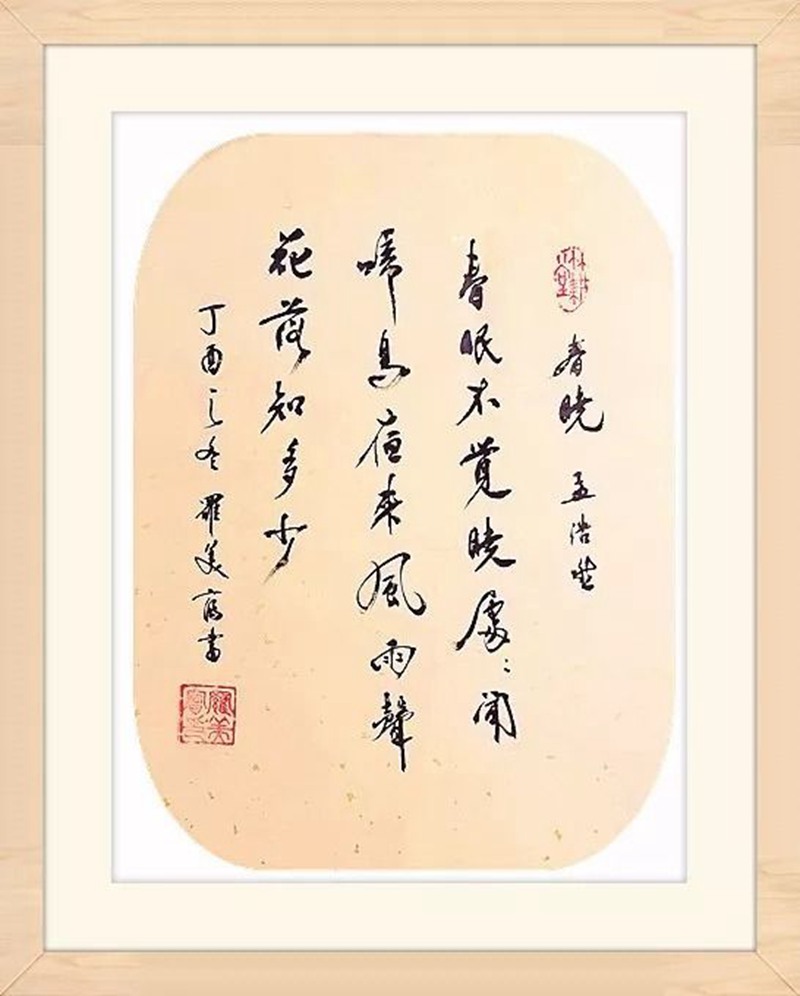 春曉 孟浩然
春眠不覺曉處〻聞
啼鳥夜来風雨聲
花落知多少
丁酉之冬 羅美富書